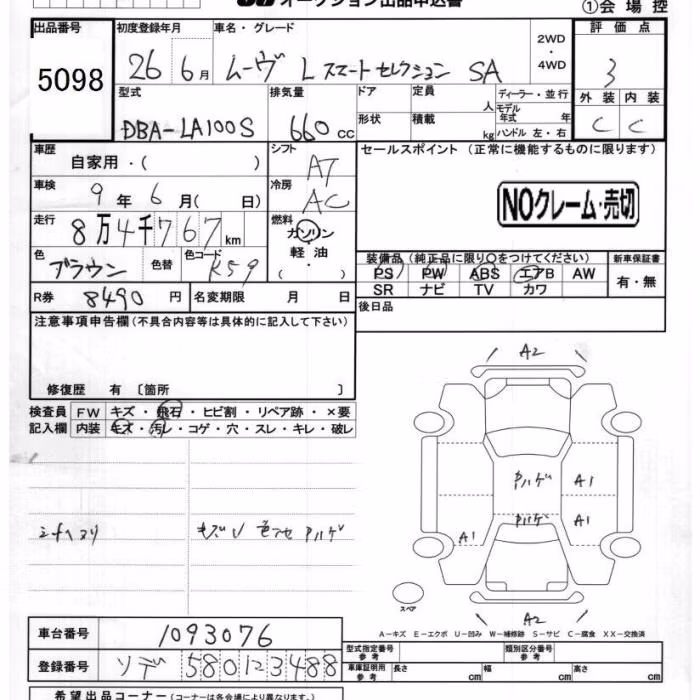 オークション出品申込書
①会場控
出品番号 初度登録年月 車名・グレード 2WD・4WD 評価点
5098 26年6月 ムーヴ L スマートセレクション SA 3
型式 排気量 ドア 定員 人 ディーラー・並行 外装 内装
モデル年式 年
DBA-LA100S 660cc 形状 積載 kg ハンドル 左・右 C C
車歴 自家用・( ) シフト AT セールスポイント (正常に機能するものに限ります)
車検 9年6月( 日) 冷房 AC NOクレーム・売切
走行 8万4千767km 燃料 ガソリン・軽油・( )
色 ブラウン 色替 色コード K59
装備品(純正品に限り○をつけてください) 新車保証書
PS PW ABS エアB AW 有・無
SR ナビ TV カワ
R券 8490円 名変期限 月 日 後日品
注意事項申告欄(不具合内容等は具体的に記入して下さい)
修復歴 有 〔箇所 〕
検査員 FW キズ・飛石・ヒビ割・リペア跡・×要
記入欄 内装 キズ・汚レ・コゲ・穴・スレ・キレ・破レ
A2
ルハゲ A1
キズU 色アセ ルハゲ
ルハゲ A1
A1
スペア
A2
A-キズ E-エクボ U-凹み W-補修跡 S-サビ C-腐食 XX-交換済
車台番号 1093076
登録番号 ソデ 580 1 2 3 488
型式指定番号 参考 類別区分番号 参考
車庫証明用 参考 長さ cm 幅 cm 高さ cm
希望出品コーナー(コーナーは各会場により異なります)